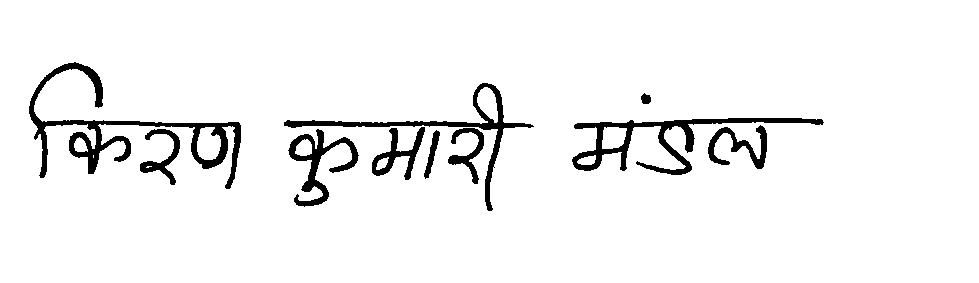 किरण कुमारी मंडल